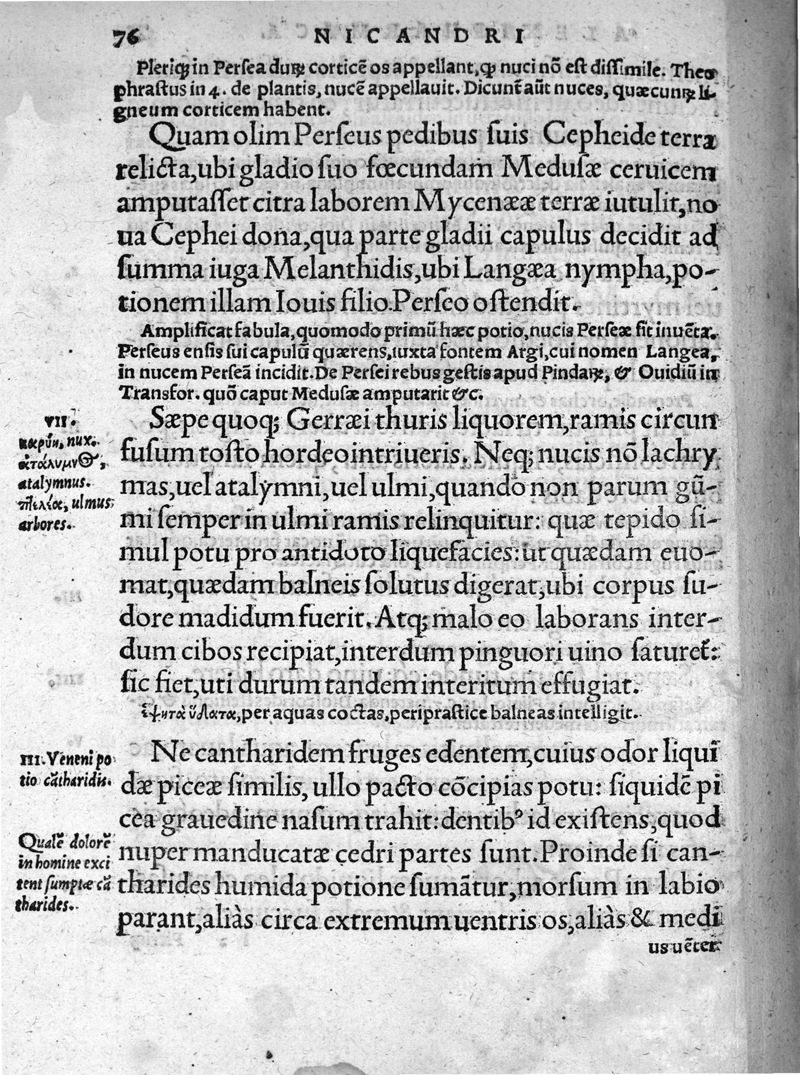 76 NICANDRI
Pleriq; in Persea durũ corticẽ os appellant, ꝙ nuci nõ est dissimile. Theo
phrastus in 4. de plantis, nucẽ appellauit. Dicunt aũt nuces, quæcunq; li-
gneum corticem habent.
Quam olim Perseus pedibus suis Cepheide terra
relicta, ubi gladio suo fœcundam Medusæ ceruicem
amputasset citra laborem Mycenææ terræ iutulit, no
ua Cephei dona, qua parte gladii capulus decidit ad
summa iuga Melanthidis, ubi Langæa nympha, po-
tionem illam Iouis filio. Perseo ostendit.
Amplificat fabula, quomodo primũ hæc potio, nucis Perseæ sit inuẽta.
Perseus ensis sui capulũ quærens, iuxta fontem Argi, cui nomen Langea,
in nucem Perseã incidit. De Persei rebus gestis apud Pindarꝝ, & Ouidiũ in
Transfor. quõ caput Medusæ amputarit &c.
VII.
καρύη, nux.
ἀτάλυμνος,
atalymnus.
πτελέα, ulmus
arbores.
Sæpe quoq; Gerræi thuris liquorem, ramis circun
fusum tosto hordeo intriueris. Neq; nucis nõ lachry
mas, uel atalymni, uel ulmi, quando non parum gũ-
mi semper in ulmi ramis relinquitur: quæ tepido si-
mul potu pro antidoto liquefacies: ut quædam euo-
mat, quædam balneis solutus digerat, ubi corpus su-
dore madidum fuerit. Atq; malo eo laborans inter-
dum cibos recipiat, interdum pinguori uino saturet:
sic fiet, uti durum tandem interitum effugiat.
ἑψητὰ ὕδατα, per aquas coctas, periprastice balneas intelligit.
III. Veneni po
tio cãtharidis.
Ne cantharidem fruges edentem, cuius odor liqui
dæ piceæ similis, ullo pacto cõcipias potu: siquidẽ pi
cea grauedine nasum trahit: dentib⁹ id existens, quod
nuper manducatæ cedri partes sunt. Proinde si can-
tharides humida potione sumãtur, morsum in labio
parant, aliàs circa extremum uentris os, aliàs & medi
Qualẽ dolorẽ
in homine exci
tent sumptæ cã
tharides.
us uẽter